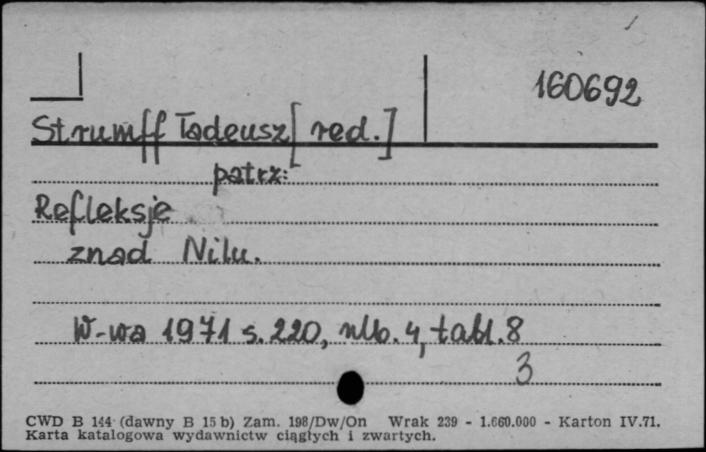 160692
Strumff Tadeusz [red.]
patrz:
Refleksje
znad Nilu.
W-wa 1971 s. 220, nlb. 4, tabl. 8
3
CWD B 144 (dawny B 15 b) Zam. 198/Dw/On Wrak 239 - 1.660.000 - Karton IV.71.
Karta katalogowa wydawnictw ciągłych i zwartych.